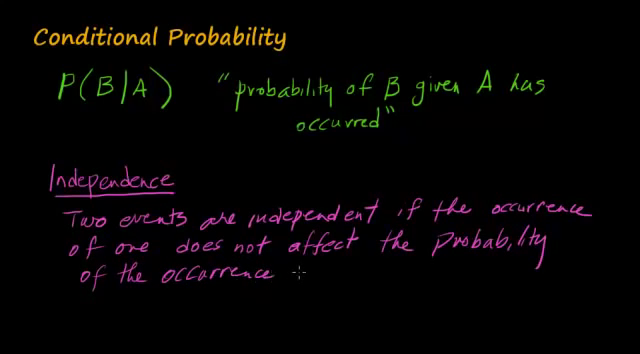 Conditional Probability
P(B/A) "probability of B given A has
occurred"
Independence
Two events are independent if the occurrence
of one does not affect the probability
of the occurrence